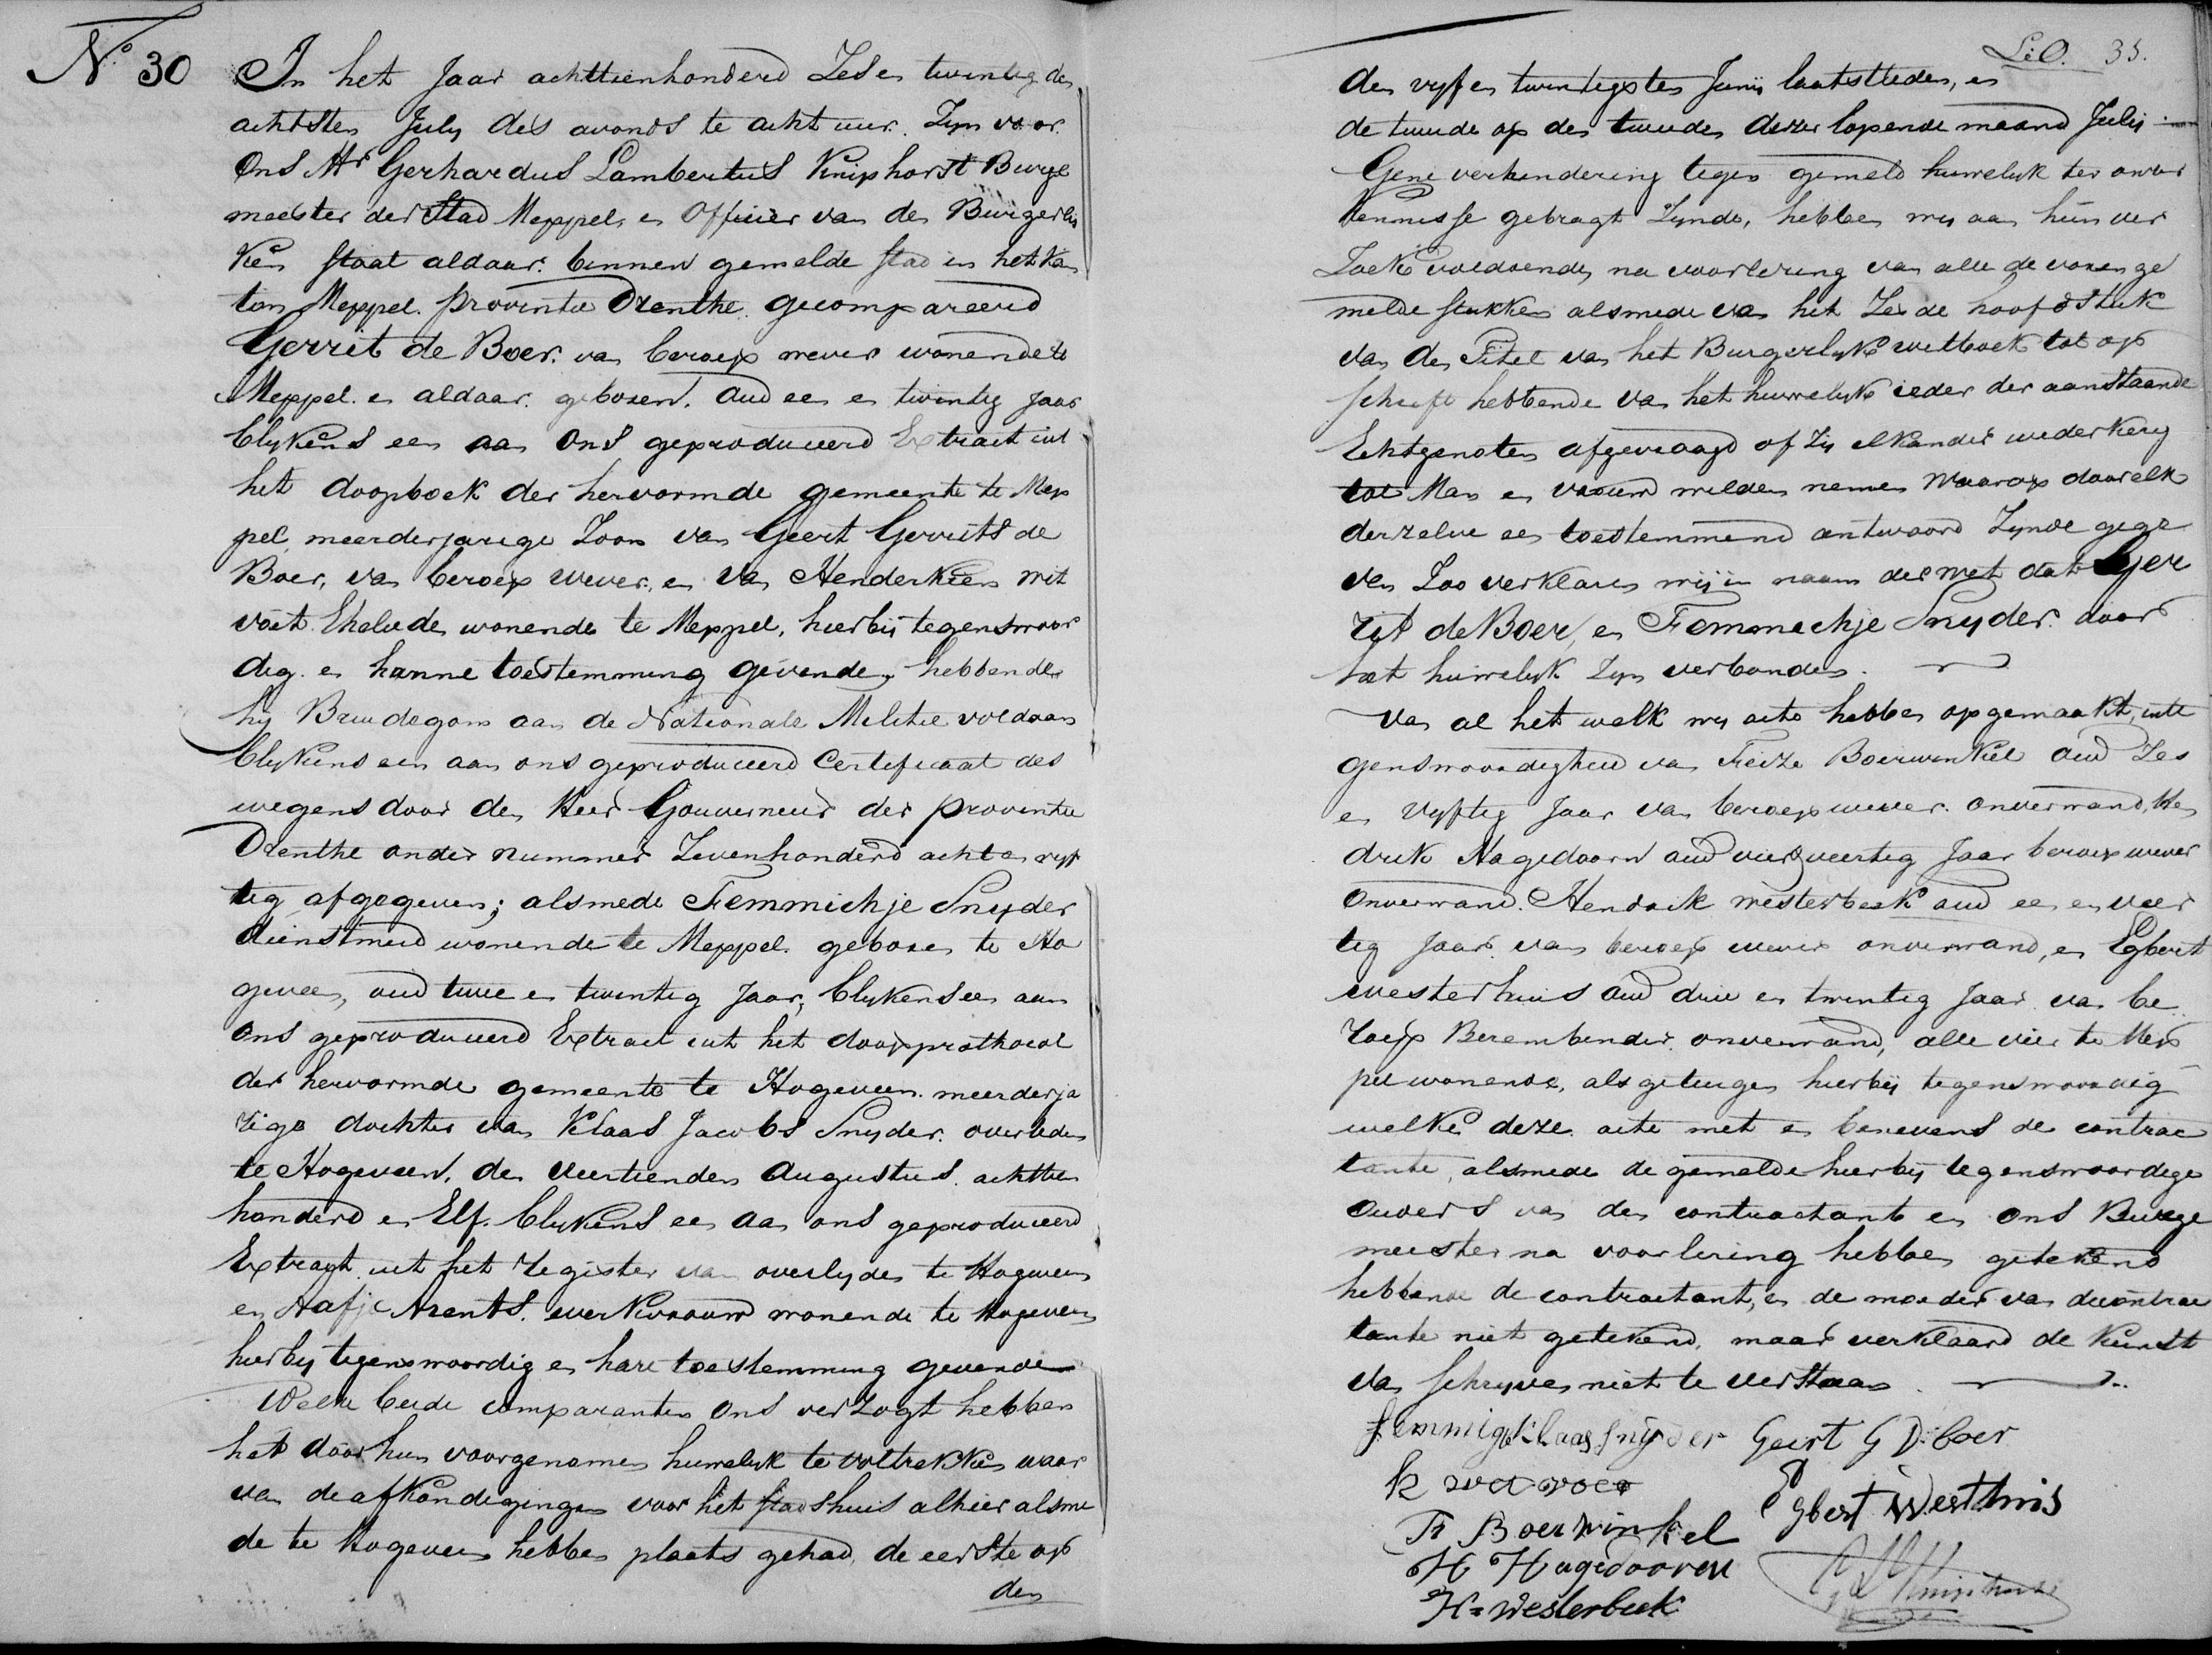 N.o 30
In het Jaar achttienhonderd Zes en twintig den
achtsten July des avonds te acht uur. Zyn voor
Ons Mr Gerhardus Lambertus Kniphorst Burge
meester der Stad Meppel, en Officier van den Burgerly
ken staat aldaar. binnen gemelde stad in het kan
ton Meppel. provintie Drenthe. gecompareerd
Gerrit de Boer. van beroep wever wonende te
Meppel. en aldaar. geboren. oud een en twintig Jaar
blykens een aan Ons geproduceerd Extract uit
het doopboek der hervormde gemeente te Mep
pel, meerderjarige Zoon van Geert Gerrits de
Boer, van beroep wever, en van Henderkien wit
voet. Ehelieden wonende te Meppel, hierbij tegenswoor
dig. en hunne toestemming gevende, hebbende
hy Bruidegom aan de Nationale Militie voldaan
blykens een aan ons geproduceerd Certificaat des
wegens door den Heer Gouverneur der provintie
Drenthe onder nummer Zevenhonderd acht en vyf
tig afgegeven; alsmede Femmichje Snyder
dienstmeid wonende te Meppel. geboren te Ho
geveen, oud twee en twintig Jaar, blykens een aan
Ons geproduceerd Extract uit het doopprothocol
der hervormde gemeente te Hogeveen. meerderja
rige dochter van Klaas Jacobs Snyder. overleden
te Hogeveen, den veertienden Augustus. achttien
honderd en Elf. blykens een aan ons geproduceerd
Extragt uit het Register van overlyden te Hogeveen
en Aafje Arents. werkvrouw wonende te Hogeveen
hierby tegenswoordig en hare toestemming gevende
Welke beide comparanten Ons verzogt hebben
het door hun voorgenomen huwelyk te voltrekken waar
van de afkondigingen voor het stadshuis alhier alsme
de te Hogeveen hebben plaats gehad, de eerste op
den
35.
den vyf en twintigsten Junij laatstleden, en
de tweede op den tweeden dezer lopende maand Julij
Gene verhindering tegen gemeld huwelyk ter onzer
kennisse gebragt Zynde, hebben wy aan hun ver
Zoek voldoende, na voorlezing van alle de vorenge
melde stukken alsmede van het Zesde hoofdstuk
van den Titel van het Burgerlyke wetboek tot op
schrift hebbende van het huwelyk ieder der aanstaande
Echtgenoten afgevraagd of Zy elkander wederkerig
tot Man en vrouw wilden nemen Waarop door elk
derzelve een toestemmend antwoord Zynde gege
ven Zoo verklaren wij in naam der wet dat Ger
rit de Boer, en Femmechje Snyder. door
het huwelyk Zyn verbonden.
Van al het welk wy acte hebben opgemaakt, inte
genswoordigheid van Feize Boerwinkel oud Zes
en vyftig Jaar van beroep wever. onverwand, Hen
drik Hagedoorn oud vier veertig Jaar beroep wever
onverwand. Hendrik westerbeek oud een en veer
tig Jaar van beroep wever onverwand, en Egbert
westerhuis oud drie en twintig Jaar van be
roep Berembinder. onverwand, alle vier te Mep
pel wonende, als getuigen hierbij tegenswoordig
welke deze acte met en benevens de contrac
tante, alsmede de gemelde hierbij tegenswoordige
ouders van den contractant en Ons Burge
meester na voorlezing hebben getekend
hebbende de contractant, en de moeder van de contrac
tante niet getekend, maar verklaard de kunst
van schryven niet te verstaan.
Femmigh klaas snyder Geert G D: boer
Egbert Westhuis
F Boerwinkel
H Hagedooren
H= Westerbeek